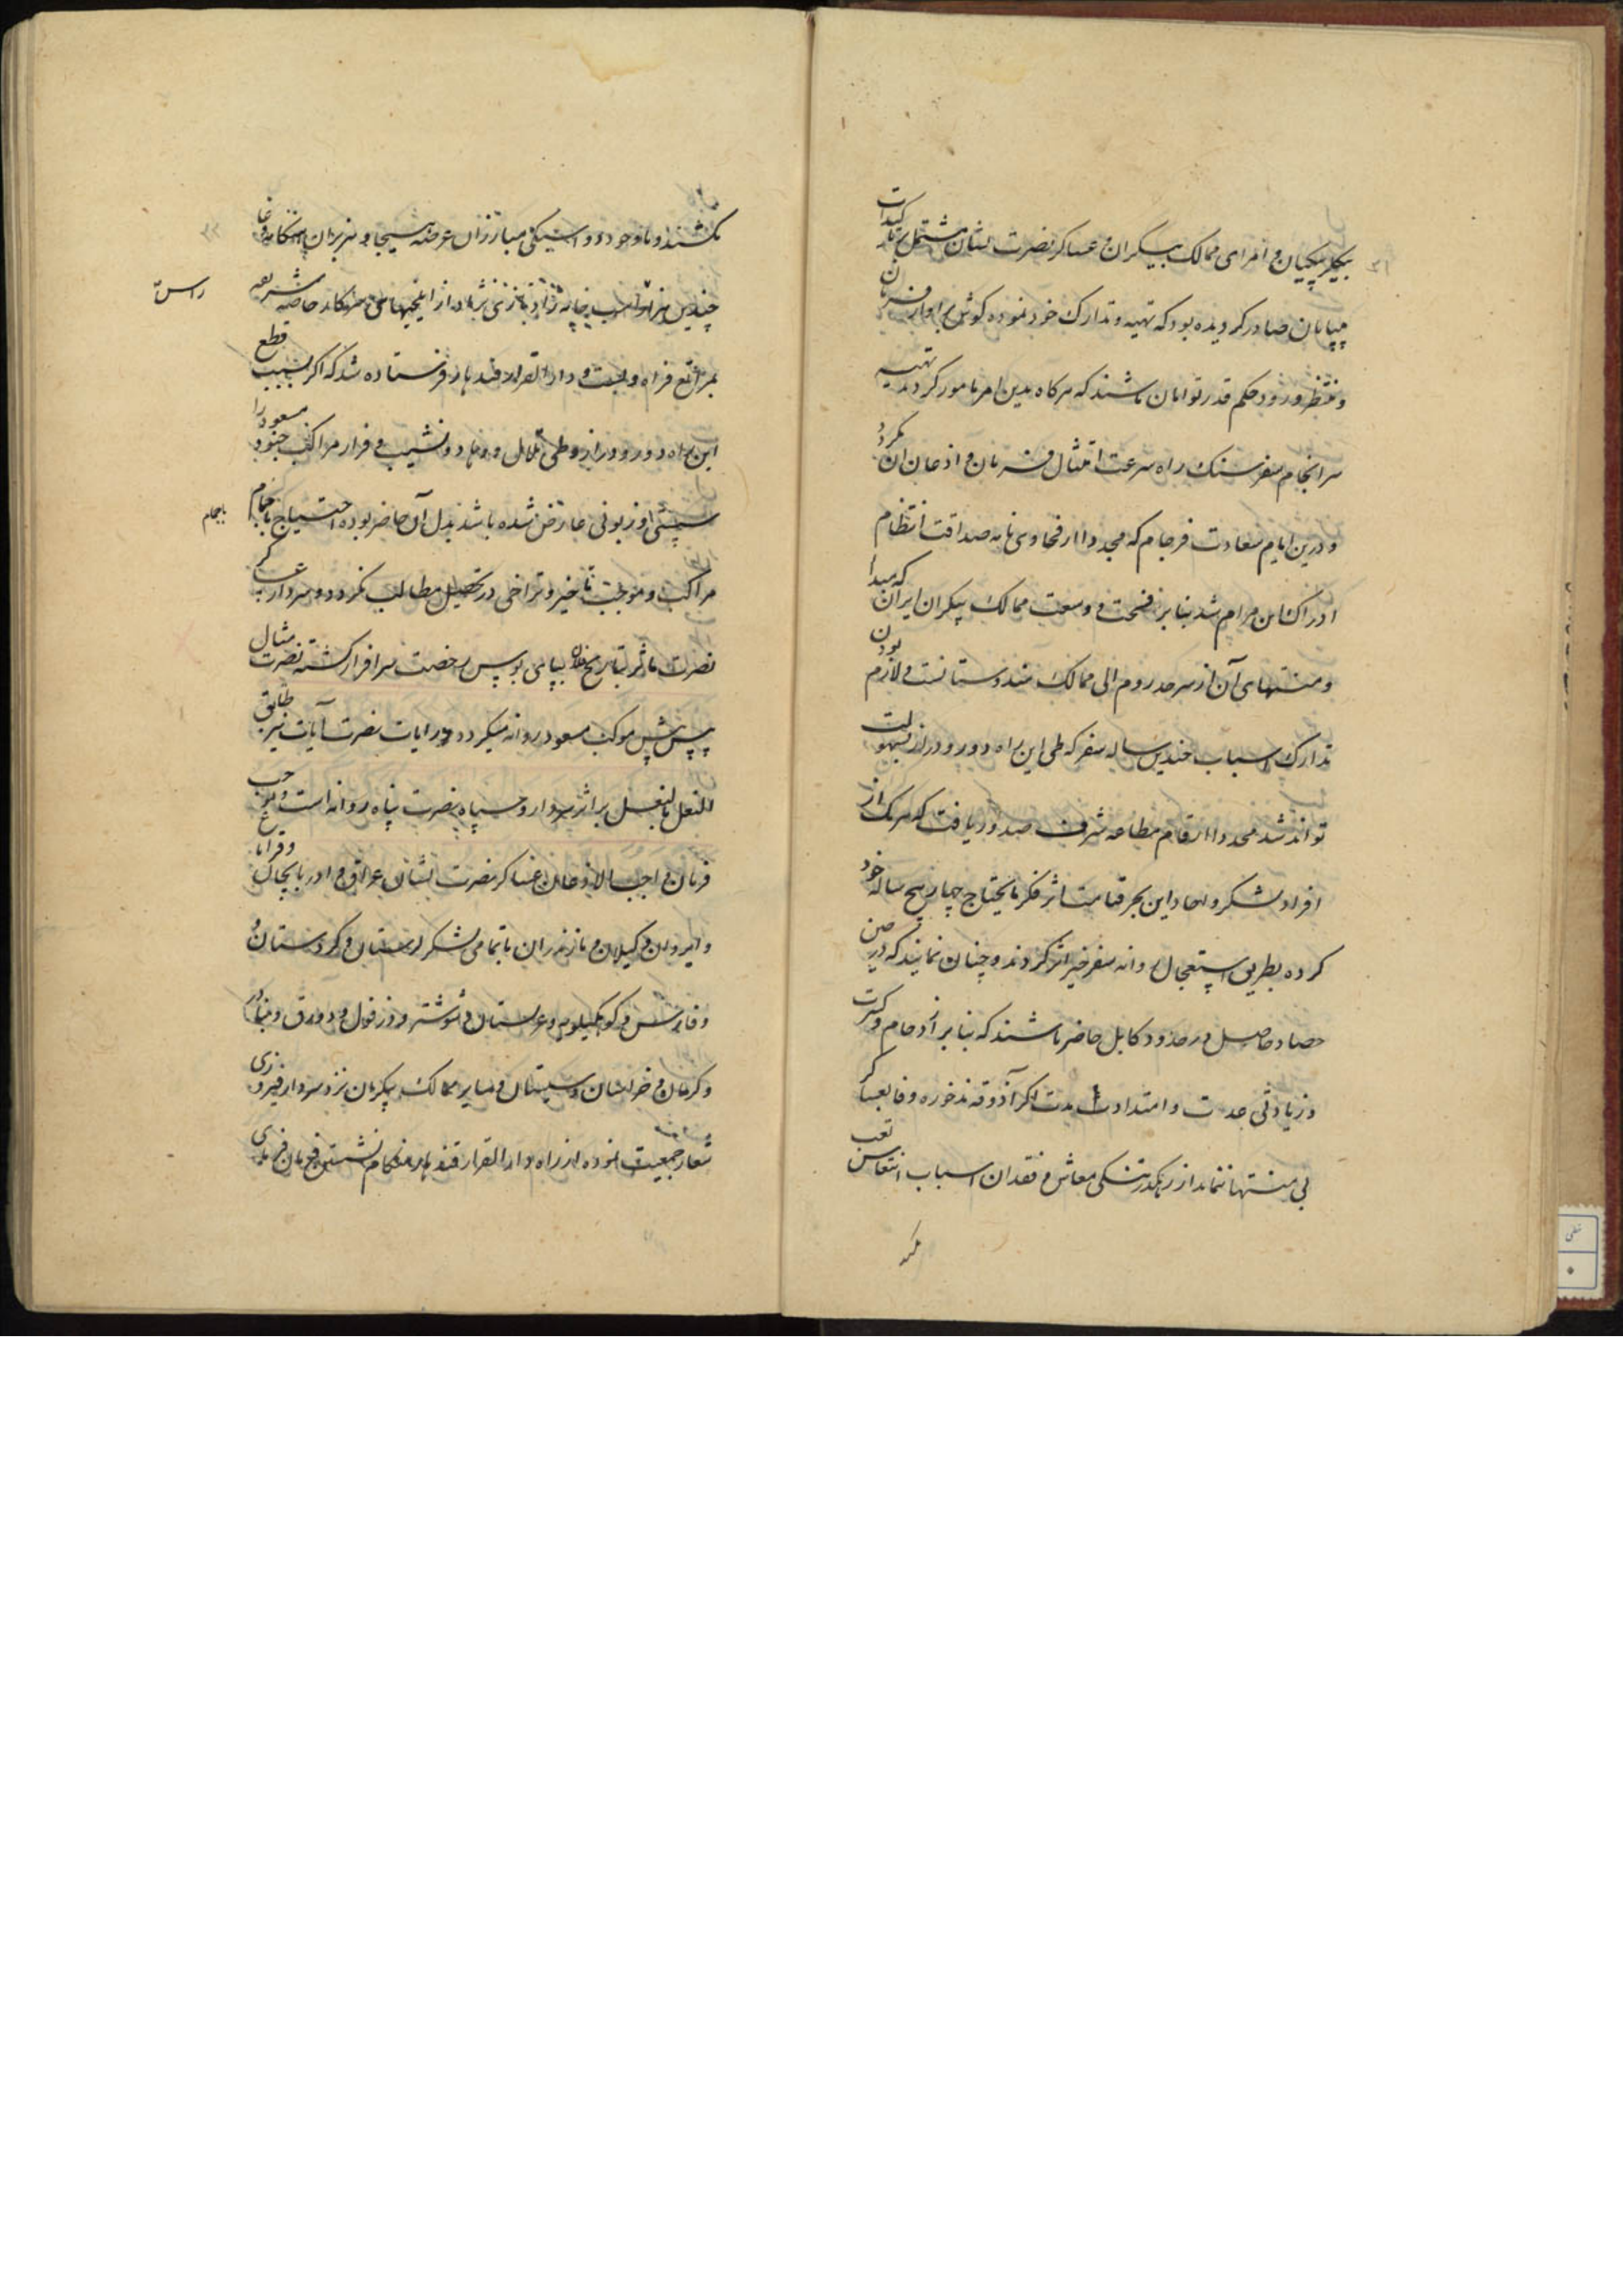 بیکلربیکیان و امرای ممالک بیکران و عساکر نصرت نشان مشتمل بر تاکیدات
بی‌پایان صادر گردیده بود که تهیه و تدارک خود نموده گوش بر اواز فرمان
و منتظر ورود حکم قدر توامان باشند که هرگاه بدین امر مامور گردند تهیه
سرانجام سفر سنک راه سرعت امتثال فرمان و اذعان ان نگردد
و درین ایام سعادت فرجام که مجددا از فحاوی نامه صداقت انتظام
ادراک این مرام شد بنا بر فسحت و وسعت ممالک بیکران ایران که مبدا
و منتهای آن از سرحد روم الی ممالک هندوستانست و لازم بودن
تدارک اسباب چندین ساله سفر که طی این راه دور و دراز بسهولت
تواند شد مجددا ارقام مطاعه شرف صدور یافت که هر یک از
افراد لشکر و احاد این بحر قیامت اثر فکر مایحتاج چهار پنج ساله خود
کرده بطریق استعجال روانه سفر خیر اثر گردند و چنان نمایند که در حین
حصاد حاصل در حدود کابل حاضر باشند که بنا بر ازدحام و کثرت
و زیادتی عدت و امتداد مدت اگر آذوقه ذخوره وفا بعساکر
بی منتها ننماید از رهگذر تنگی معاش و فقدان اسباب انتعاش تعب
نکشند و با وجود دو اسبکی مبارزان عرصه هیجا و هزبران هنگامه وغا
چندین هزار راس اسب خانه زاد تازی نژاد از ایلخیهای سرکار خاصه شریفه
بمواضع فراه و بست و دار القرار قندهار فرستاده شد که اگر بسبب قطع
این راه دور و دراز و طی تلال و وهاد و نشیب و فراز مراکب جنود مسعود را
سستی و زبونی عارض شده باشد بدل آن حاضر بوده احتیاج باجمام
مراکب و موجب تاخیر و تراخی در تحصیل مطالب نگردد و سردار عساکر
نصرت ماثر بتاریخ فلان بپای بوس رخصت سرافراز گشته نصرت مثال
پیش پیش موکب مسعود روانه میگردد و رایات نصرت آیات نیز طابق
النعل بالنعل بر اثر سردار و سپاه نصرت پناه روانه است و بر حسب
فرمان واجب الاذعان عساکر نصرت نشان عراق و اذربایجان و قراباغ
و ایروان و گیلان و مازندران با تمامی لشکر لرستان و کردستان
و فارس و کوهکیلویه و عربستان و شوشتر و دزفول و دورق و بنادر
و کرمان و خراسان و سیستان و سایر ممالک بیکران نزد سردار فیروزی
شعار جمعیت نموده از راه دار القرار قندهار
راس
باجمام